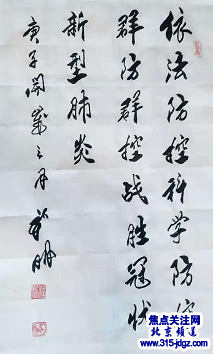 依法防控科学防控
群防群控战胜冠状
新型肺炎
庚子開歲之月
焦点关注网
北京频道
www.315-jdgz.com